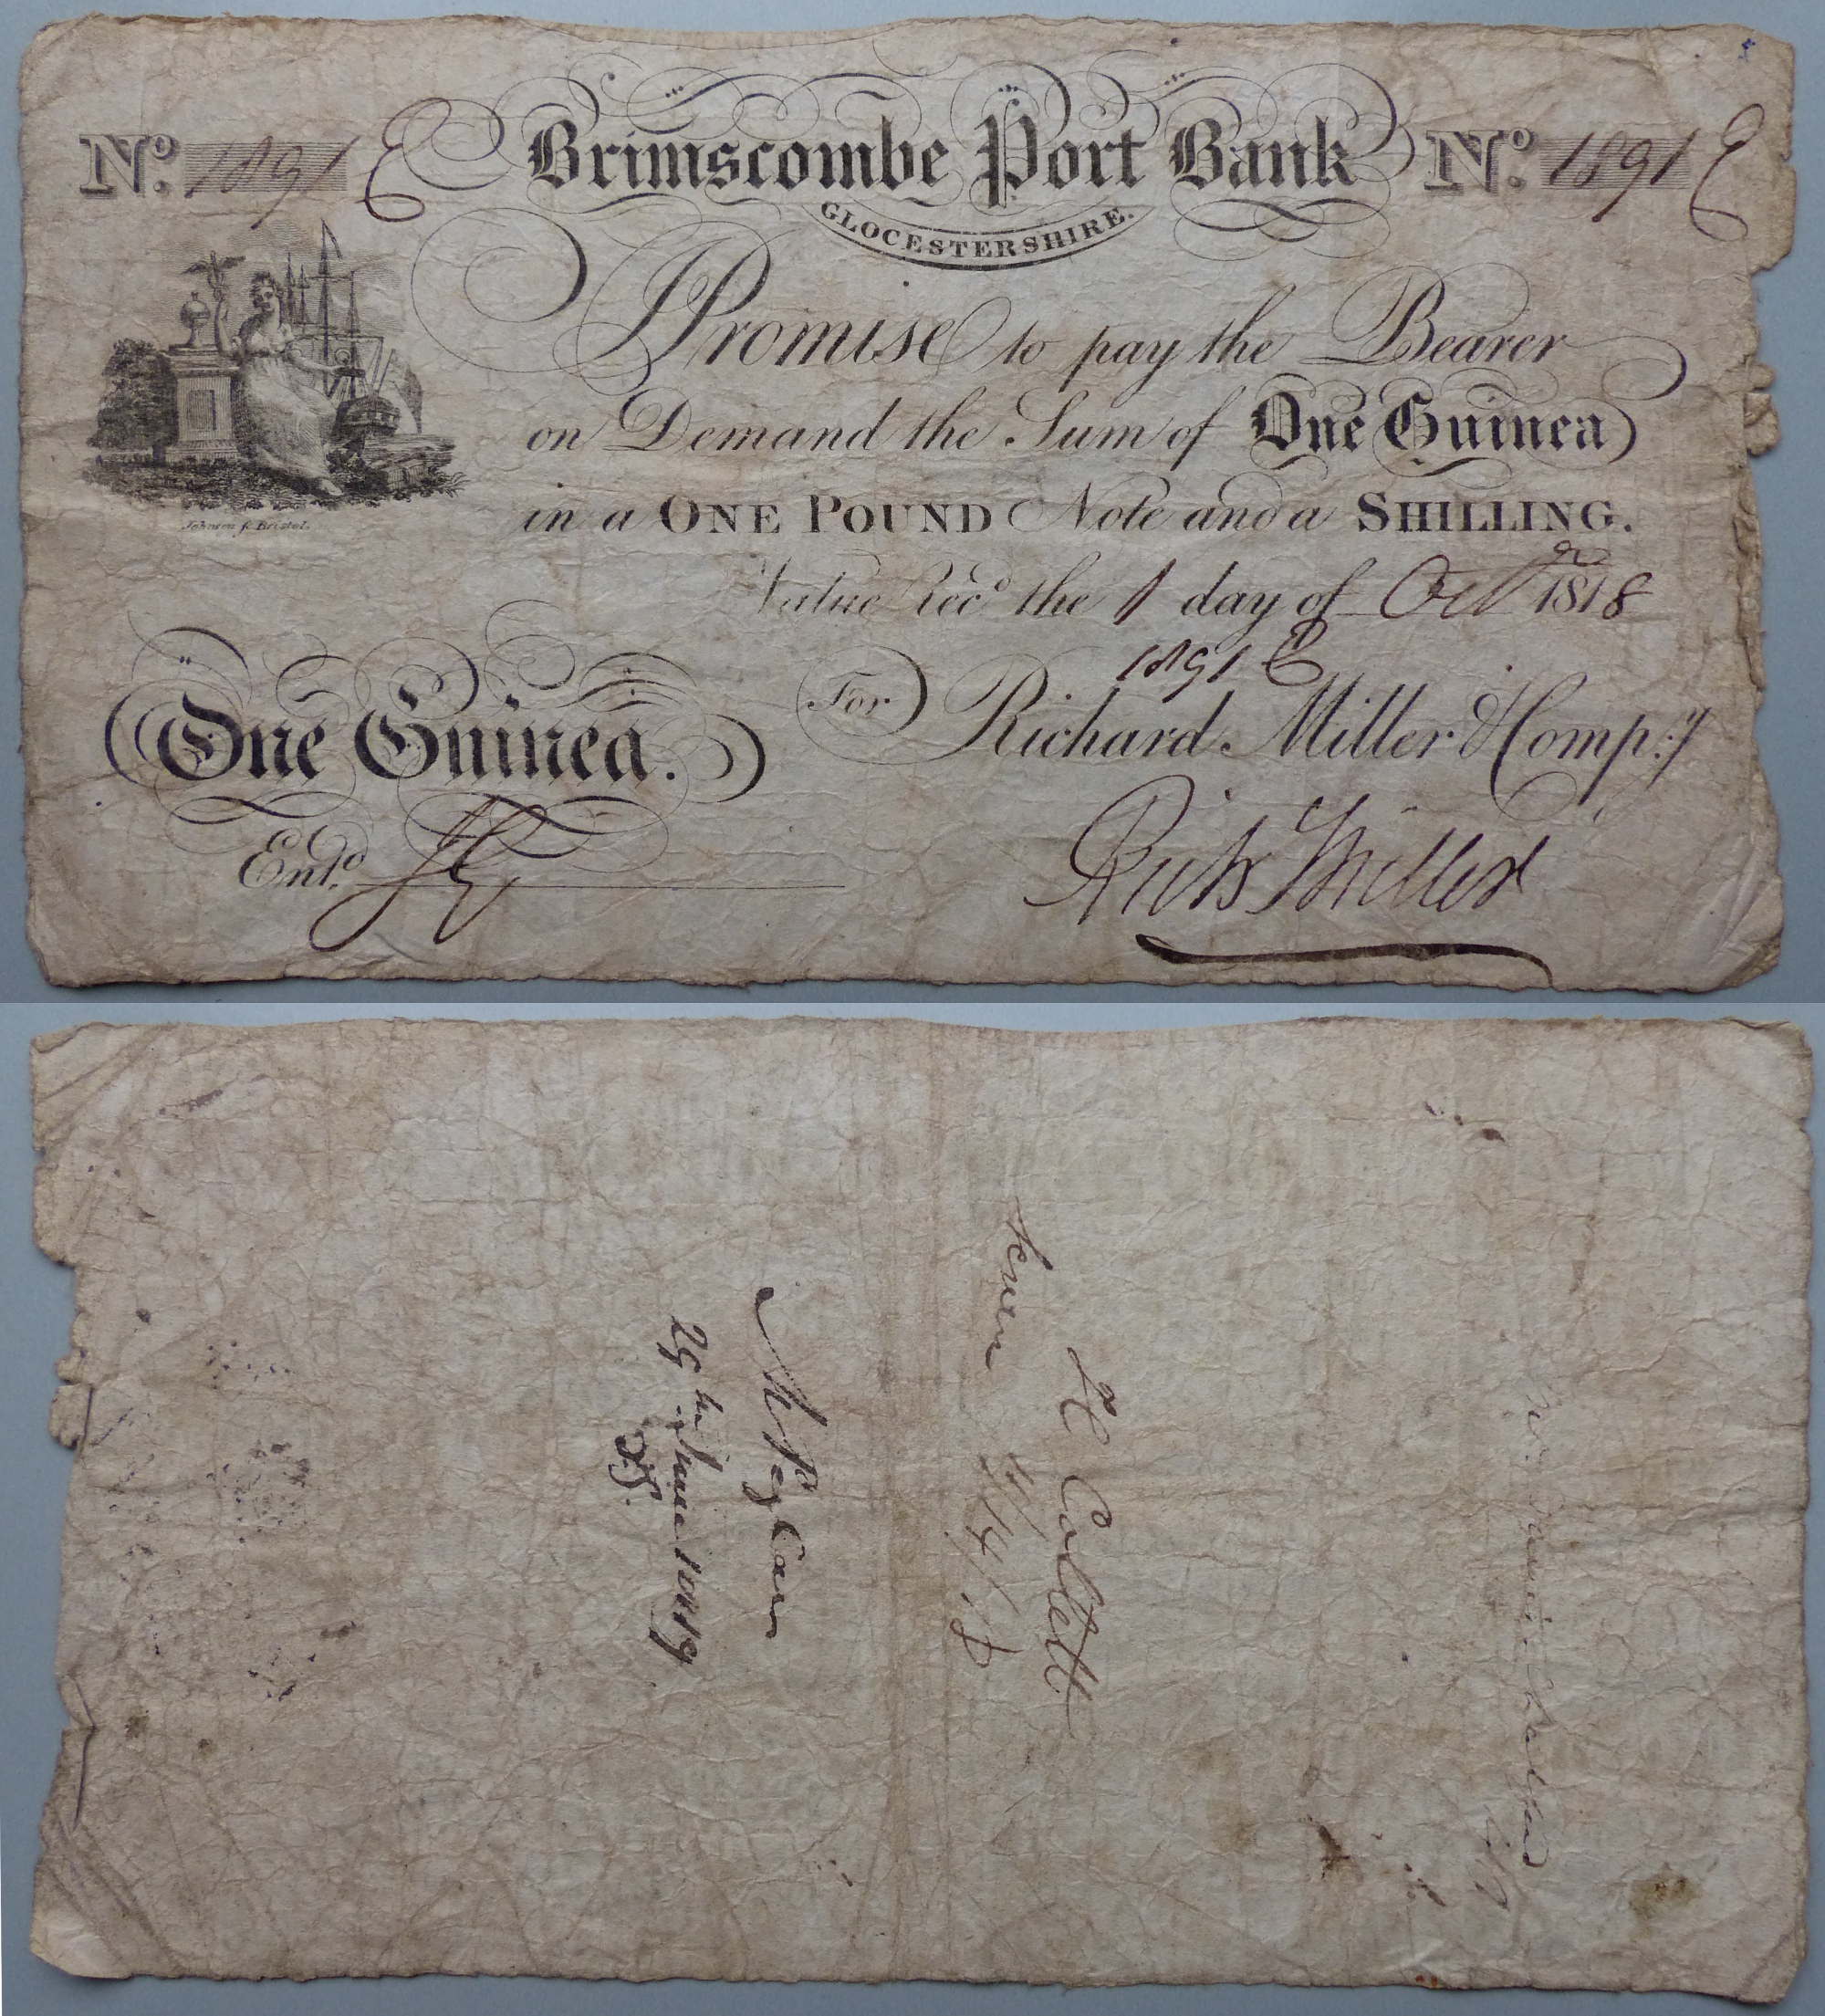 No. 1891 E Brimscombe Port Bank No. 1891 E
GLOCESTERSHIRE.
I Promise to pay the Bearer
on Demand the Sum of One Guinea
in a ONE POUND Note and a SHILLING.
Johnson f. Bristol.
Value Recd. the 1 day of Oct 1818
1891 E
One Guinea. For Richard Miller & Comp:y
Entd.
Richd Miller
H Collett
29th June 1819